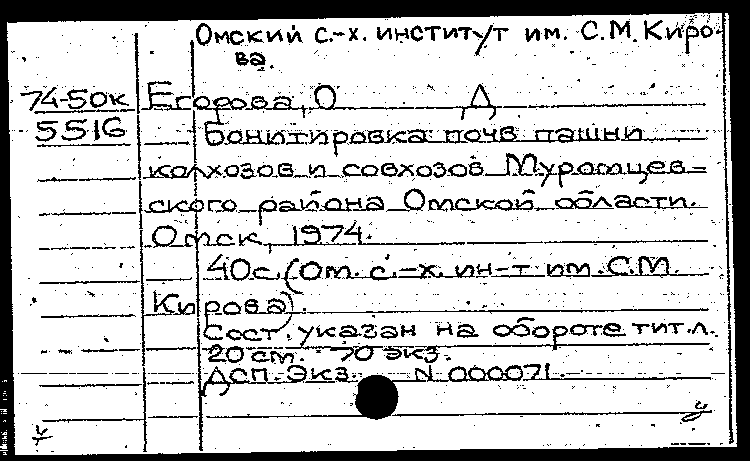 Омский с.-х. институт им. С.М. Киро-
ва.
74-50к Егорова, О Д
5516 Бонитировка почв пашни
колхозов и совхозов Муромцев-
ского района Омской области.
Омск, 1974.
40с. (Ом. с.-х. ин-т им. С.М.
Кирова).
Сост. указан на обороте тит.л.
20 см. 70 экз.
ДСП. Экз. N 000071.
у